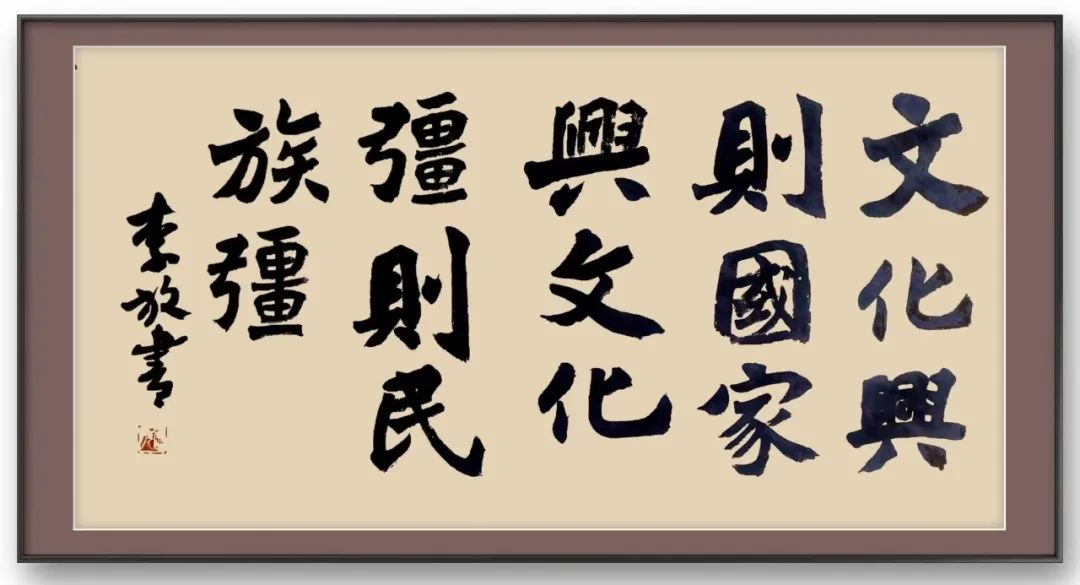 文化興
則國家
興文化
彊則民
族彊
李放書